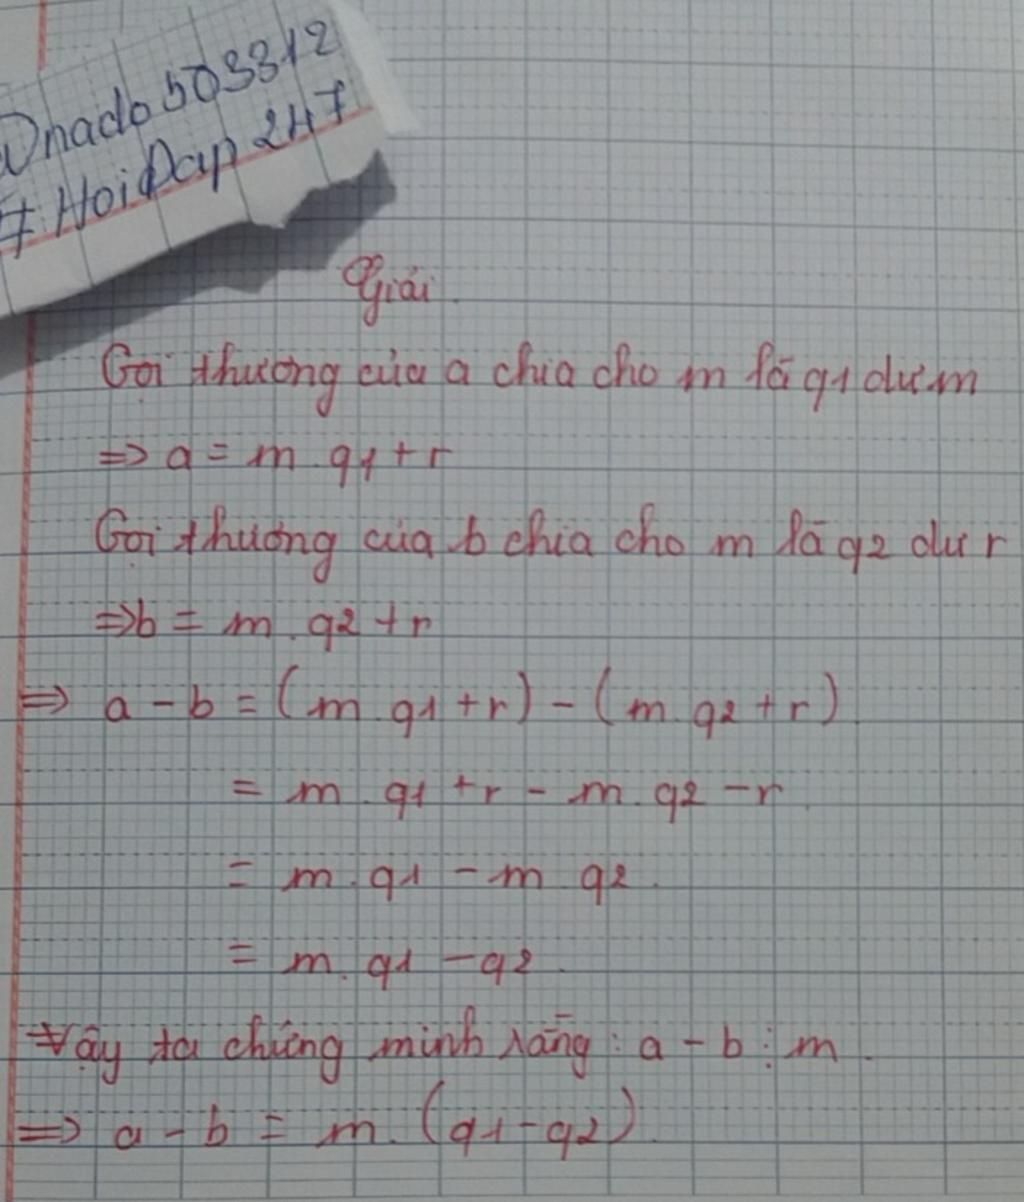 Dnado503312
# HoiDap247
Giải
Gọi thương của a chia cho m lã q1 dư m
=> a = m . q1 + r
Gọi thương của b chia cho m lã q2 dư r
=> b = m . q2 + r
=> a - b = (m . q1 + r) - (m . q2 + r)
= m . q1 + r - m . q2 - r
= m . q1 - m . q2
= m . q1 - q2
Vậy ta chứng minh rằng : a - b ⋮ m
=> a - b = m . (q1 - q2)